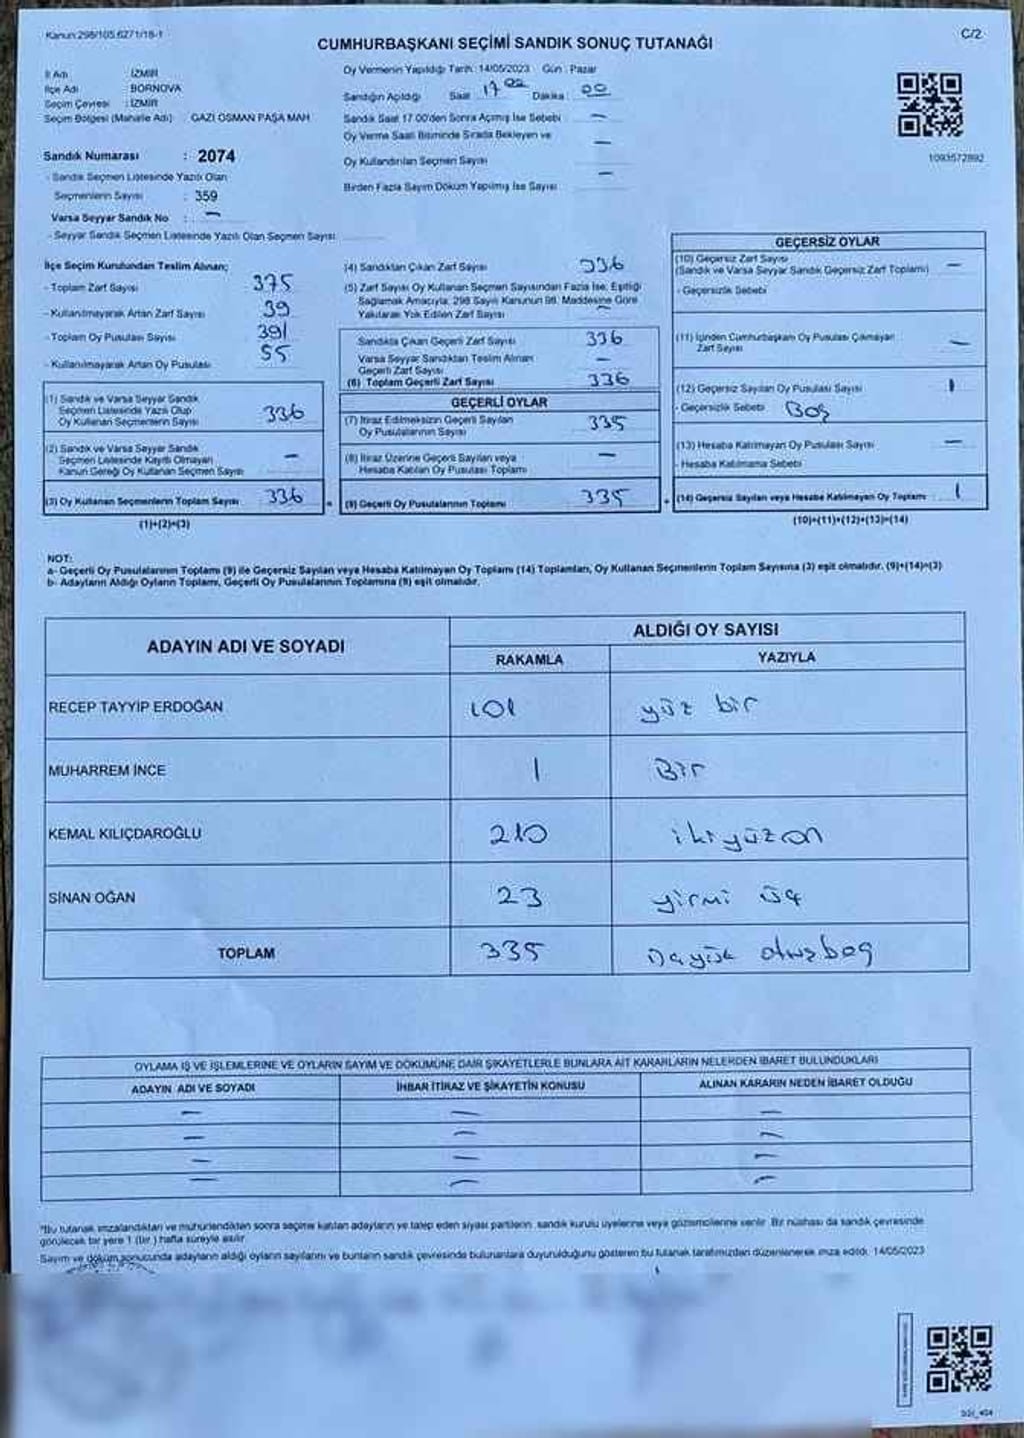 Kanun:298/105,6271/18-1
C/2
CUMHURBAŞKANI SEÇİMİ SANDIK SONUÇ TUTANAĞI
İl Adı : İZMİR
İlçe Adı : BORNOVA
Seçim Çevresi : İZMİR
Seçim Bölgesi (Mahalle Adı) GAZİ OSMAN PAŞA MAH
Sandık Numarası : 2074
- Sandık Seçmen Listesinde Yazılı Olan
Seçmenlerin Sayısı : 359
Varsa Seyyar Sandık No : —
- Seyyar Sandık Seçmen Listesinde Yazılı Olan Seçmen Sayısı
Oy Vermenin Yapıldığı Tarih: 14/05/2023 Gün : Pazar
Sandığın Açıldığı Saat 17 00 Dakika : 00
Sandık Saat 17.00'den Sonra Açımış İse Sebebi —
Oy Verme Saati Bitiminde Sırada Bekleyen ve —
Oy Kullandırılan Seçmen Sayısı
Birden Fazla Sayım Döküm Yapılmış İse Sayısı —
1093572892
İlçe Seçim Kurulundan Teslim Alınan;
- Toplam Zarf Sayısı 375
- Kullanılmayarak Artan Zarf Sayısı 39
- Toplam Oy Pusulası Sayısı 391
- Kullanılmayarak Artan Oy Pusulası 55
(1) Sandık ve Varsa Seyyar Sandık
Seçmen Listesinde Yazılı Olup
Oy Kullanan Seçmenlerin Sayısı 336
(2) Sandık ve Varsa Seyyar Sandık
Seçmen Listesinde Kayıtlı Olmayan
Kanun Gereği Oy Kullanan Seçmen Sayısı —
(3) Oy Kullanan Seçmenlerin Toplam Sayısı 336
(1)+(2)=(3)
(4) Sandıktan Çıkan Zarf Sayısı 336
(5) Zarf Sayısı Oy Kullanan Seçmen Sayısından Fazla İse; Eşitliği
Sağlamak Amacıyla; 298 Sayılı Kanunun 98. Maddesine Göre
Yakılarak Yok Edilen Zarf Sayısı —
Sandıkta Çıkan Geçerli Zarf Sayısı 336
Varsa Seyyar Sandıktan Teslim Alınan
Geçerli Zarf Sayısı —
(6) Toplam Geçerli Zarf Sayısı 336
GEÇERLİ OYLAR
(7) İtiraz Edilmeksizin Geçerli Sayılan
Oy Pusulalarının Sayısı 335
(8) İtiraz Üzerine Geçerli Sayılan veya
Hesaba Katılan Oy Pusulası Toplamı —
= (9) Geçerli Oy Pusulalarının Toplamı 335
GEÇERSİZ OYLAR
(10) Geçersiz Zarf Sayısı —
(Sandık ve Varsa Seyyar Sandık Geçersiz Zarf Toplamı)
- Geçersizlik Sebebi
(11) İçinden Cumhurbaşkanı Oy Pusulası Çıkmayan —
Zarf Sayısı
(12) Geçersiz Sayılan Oy Pusulası Sayısı 1
- Geçersizlik Sebebi Boş
(13) Hesaba Katılmayan Oy Pusulası Sayısı —
- Hesaba Katılmama Sebebi
+ (14) Geçersiz Sayılan veya Hesaba Katılmayan Oy Toplamı : 1
(10)+(11)+(12)+(13)=(14)
NOT:
a- Geçerli Oy Pusulalarının Toplamı (9) ile Geçersiz Sayılan veya Hesaba Katılmayan Oy Toplamı (14) Toplamları, Oy Kullanan Seçmenlerin Toplam Sayısına (3) eşit olmalıdır. (9)+(14)=(3)
b- Adayların Aldığı Oyların Toplamı, Geçerli Oy Pusulalarının Toplamına (9) eşit olmalıdır.
ADAYIN ADI VE SOYADI
ALDIĞI OY SAYISI
RAKAMLA YAZIYLA
RECEP TAYYİP ERDOĞAN 101 yüz bir
MUHARREM İNCE 1 Bir
KEMAL KILIÇDAROĞLU 210 ikiyüzon
SİNAN OĞAN 23 yirmi üç
TOPLAM 335 otuzbeş
OYLAMA İŞ VE İŞLEMLERİNE VE OYLARIN SAYIM VE DÖKÜMÜNE DAİR ŞİKAYETLERLE BUNLARA AİT KARARLARIN NELERDEN İBARET BULUNDUKLARI
ADAYIN ADI VE SOYADI İHBAR İTİRAZ VE ŞİKAYETİN KONUSU ALINAN KARARIN NEDEN İBARET OLDUĞU
— — —
— — —
— — —
— — —
*Bu tutanak imzalandıktan ve mühürlendikten sonra seçime katılan adayların ve talep eden siyasi partilerin, sandık kurulu üyelerine veya gözlemcilerine verilir. Bir nüshası da sandık çevresinde
görülecek bir yere 1 (bir ) hafta süreyle asılır.
Sayım ve döküm sonucunda adayların aldığı oyların sayılarını ve bunların sandık çevresinde bulunanlara duyurulduğunu gösteren bu tutanak tarafımızdan düzenlenerek imza edildi. 14/05/2023